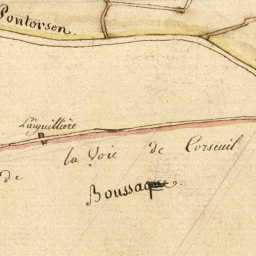 Pontorsen.
L'aiguilliere
la Voie de Corseuil
de
Boussaque.